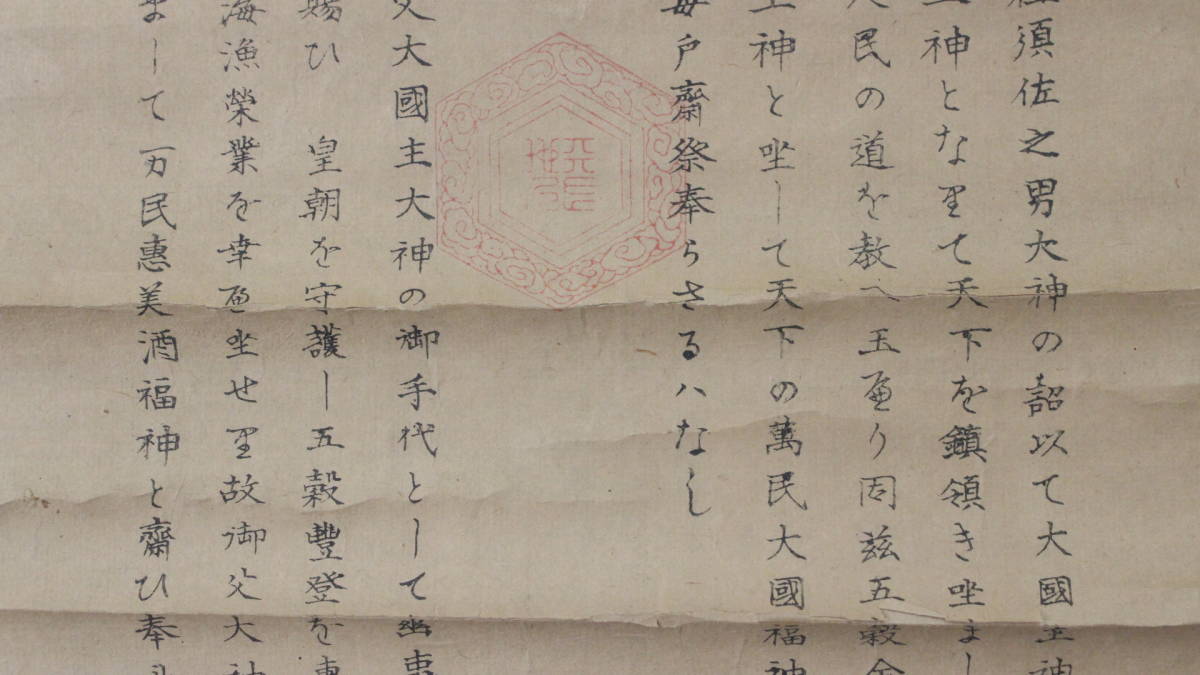 須佐之男大神の詔以て大國主神
神となりて天下を鎮領き坐まし
民の道を教へ玉へり因茲五穀
神と坐して天下の萬民大國福神
毎戸齋祭奉らさるハなし
父大國主大神の御手代として幽事
賜ひ 皇朝を守護し五穀豐登を恵
海漁榮業を幸へ坐せり故御父大神
まして万民惠美酒福神と齋ひ奉